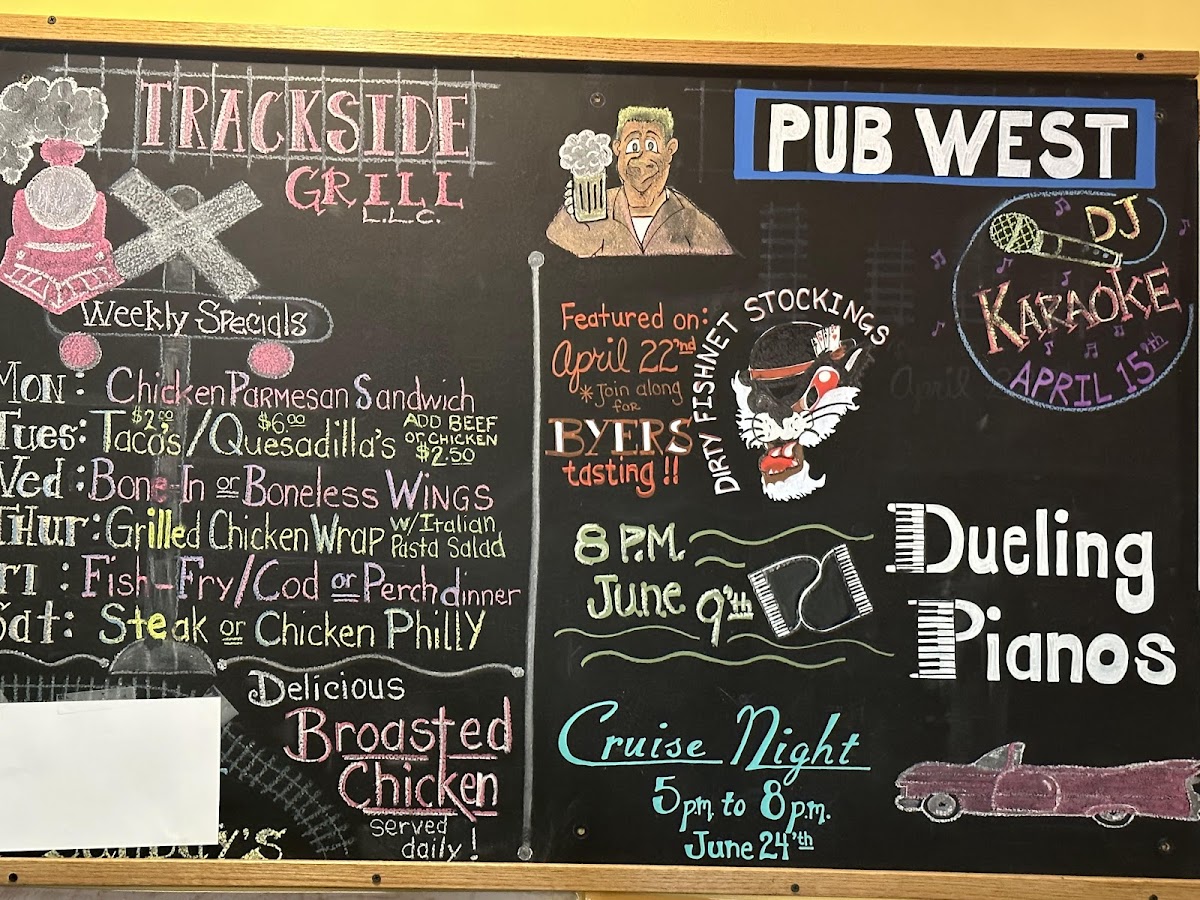 TRACKSIDE
GRILL
L.L.C.
Weekly Specials
Mon: Chicken Parmesan Sandwich
Tues: Taco's $2.00 / Quesadilla's $6.00 ADD BEEF or CHICKEN $2.50
Wed: Bone-In or Boneless Wings
Thur: Grilled Chicken Wrap w/Italian Pasta Salad
Fri: Fish-Fry/Cod or Perch dinner
Sat: Steak or Chicken Philly
Delicious
Broasted
Chicken
served
daily!
PUB WEST
DJ
KARAOKE
APRIL 15'th
Featured on:
April 22'nd
*Join along
for
BYERS
tasting!!
DIRTY FISHNET STOCKINGS
8 P.M.
June 9'th
Dueling
Pianos
Cruise Night
5 p.m. to 8 p.m.
June 24'th